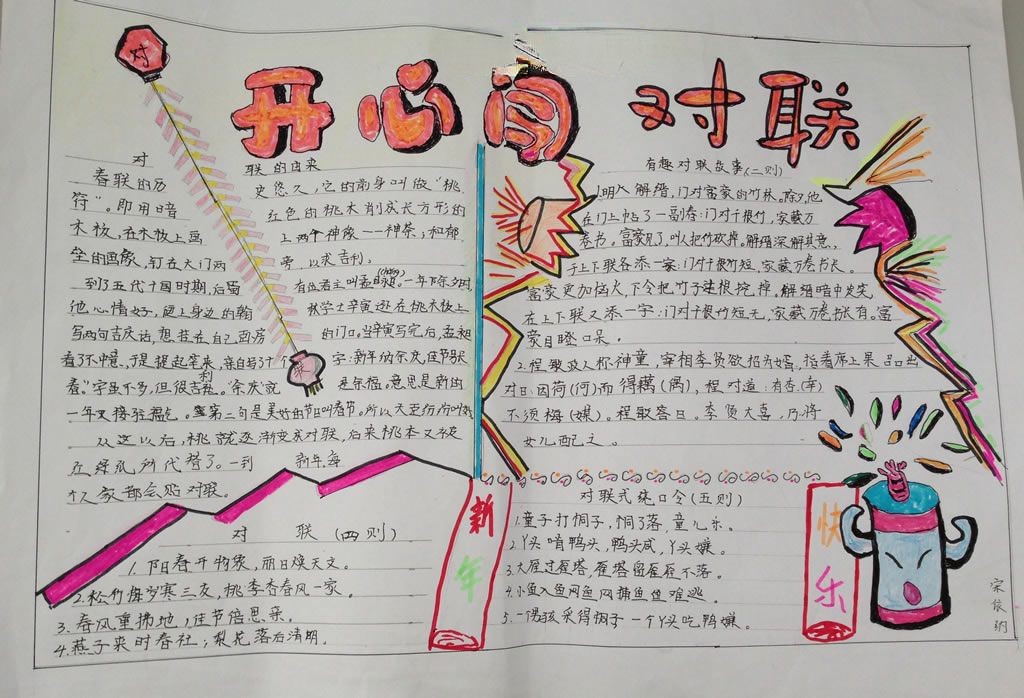 对
开心闯 对联
对 联的由来
春联的历 史悠久，它的前身叫做“桃
符”。即用暗 红色的桃木削成长方形的
木板，在木板上画 上两个神像——神荼；和郁
垒的画像，钉在大门两 旁，以求吉利；
到了五代十国时期，后蜀 有位君主叫孟昶。一年下除夕时，
他心情好，便上身边的翰 林学士辛寅逊在桃木板上
写两句吉庆话，想挂在自己画房 的门口，当辛寅写完后，孟昶
看了不中意，于是提起笔来，亲自写了个 字：新年纳余庆，佳节号长
春。”字虽不多，但很吉利。“余庆”就 是余福。意思是新的
一年又接驻福气。第二句是美好的节叫春节。所以大王
从这以后，桃就逐渐变成对联，后来桃木又被
红绿纸所代替了。一到 新年，每
个人家都会贴对联。
对 联（四则）
1. 阳春开物象，丽日焕天文。
2. 松竹梅岁寒三友，桃李杏春风一家。
3. 春风重拂地，佳节倍思亲。
4. 燕子来时春社；梨花落后清明。
新年
有趣对联故事(二则)
1. 明人解缙，门对富家的竹林。除夕，他
在门上帖了一副春：门对千根竹，家藏万
卷书。富豪见了，叫人把竹砍掉。解缙深解其意，
于上下联各添一字：门对千根竹短，家藏万卷书长。
富豪更加恼火，下令把竹子连根挖掉。解缙暗中发笑，
在上下联又添一字：门对千根竹短无，家藏万卷书长有。富
豪目瞪口呆。
2. 程敏政人称神童，宰相李贤欲招为婿，指着席上果品出
对曰：因荷(何)而得藕(偶)，程对道：有杏(幸)
不须梅(媒)。程敏答曰。李贤大喜，乃将
女儿配之。
对联式绕口令(五则)
1. 童子打桐子，桐子落，童儿乐。
2. 丫头啃鸭头，鸭头咸，丫头嫌。
3. 大雁过雁塔，雁塔留雁雁不落。
4. 小鱼入鱼网鱼网捕鱼鱼难逃。
5. 一偶孩采得桐子 一个丫头吃鸭嫌。
快乐
宋依纳